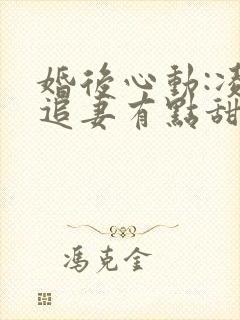 婚後心動:凌
追妻有點甜
馮克金